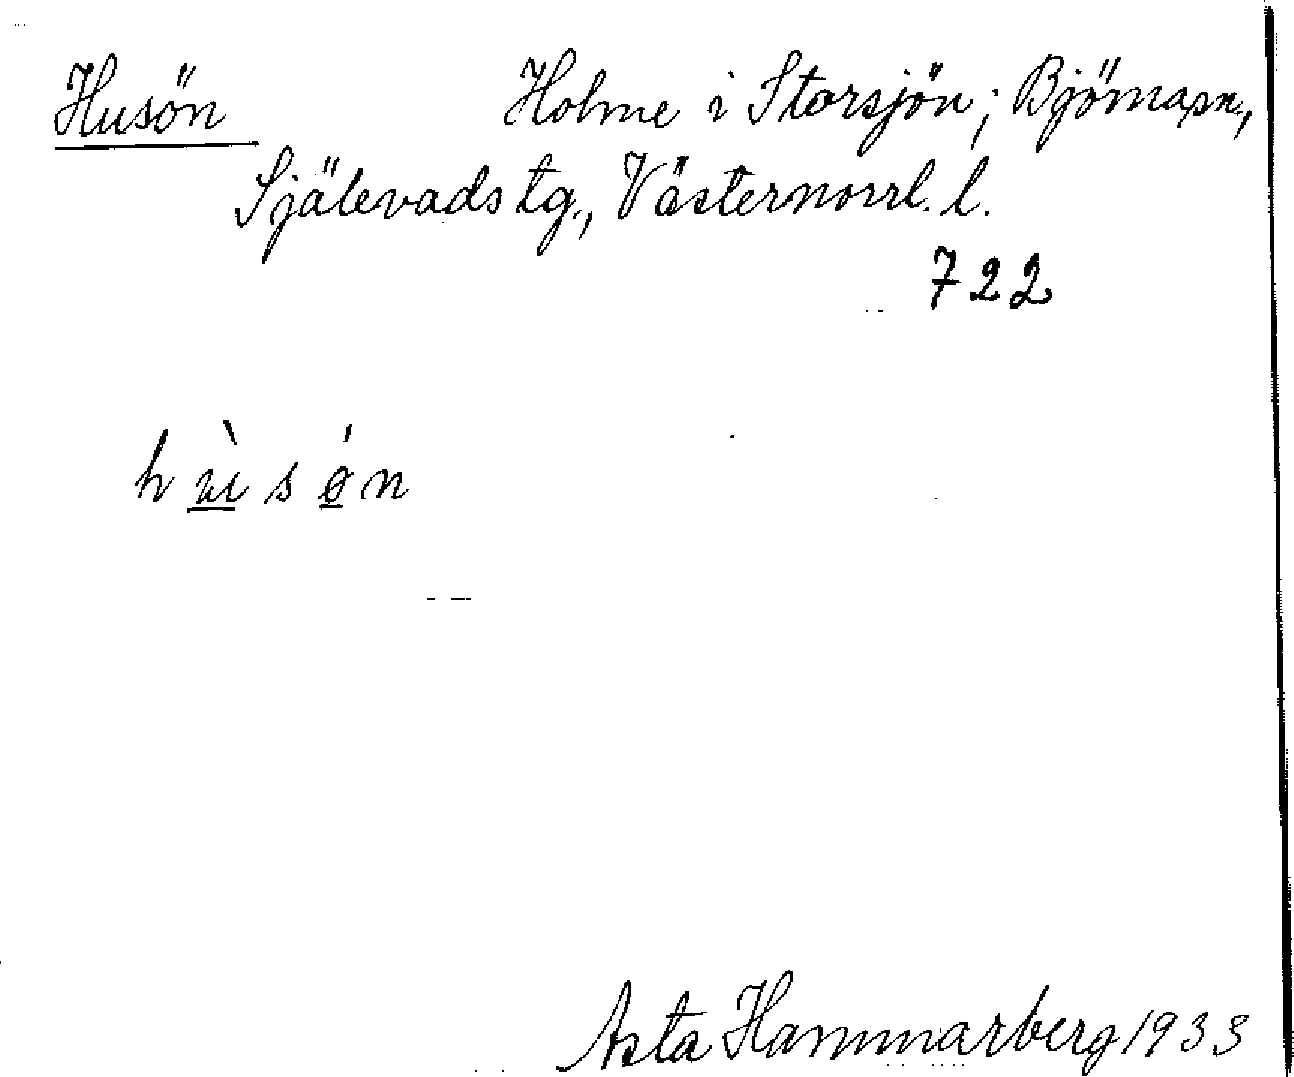 Husön Holme i Storsjön; Björna sn.,
Själevads tg., Västernorrl. l.
722
h ù s ǿ n
Asta Hammarberg 1933